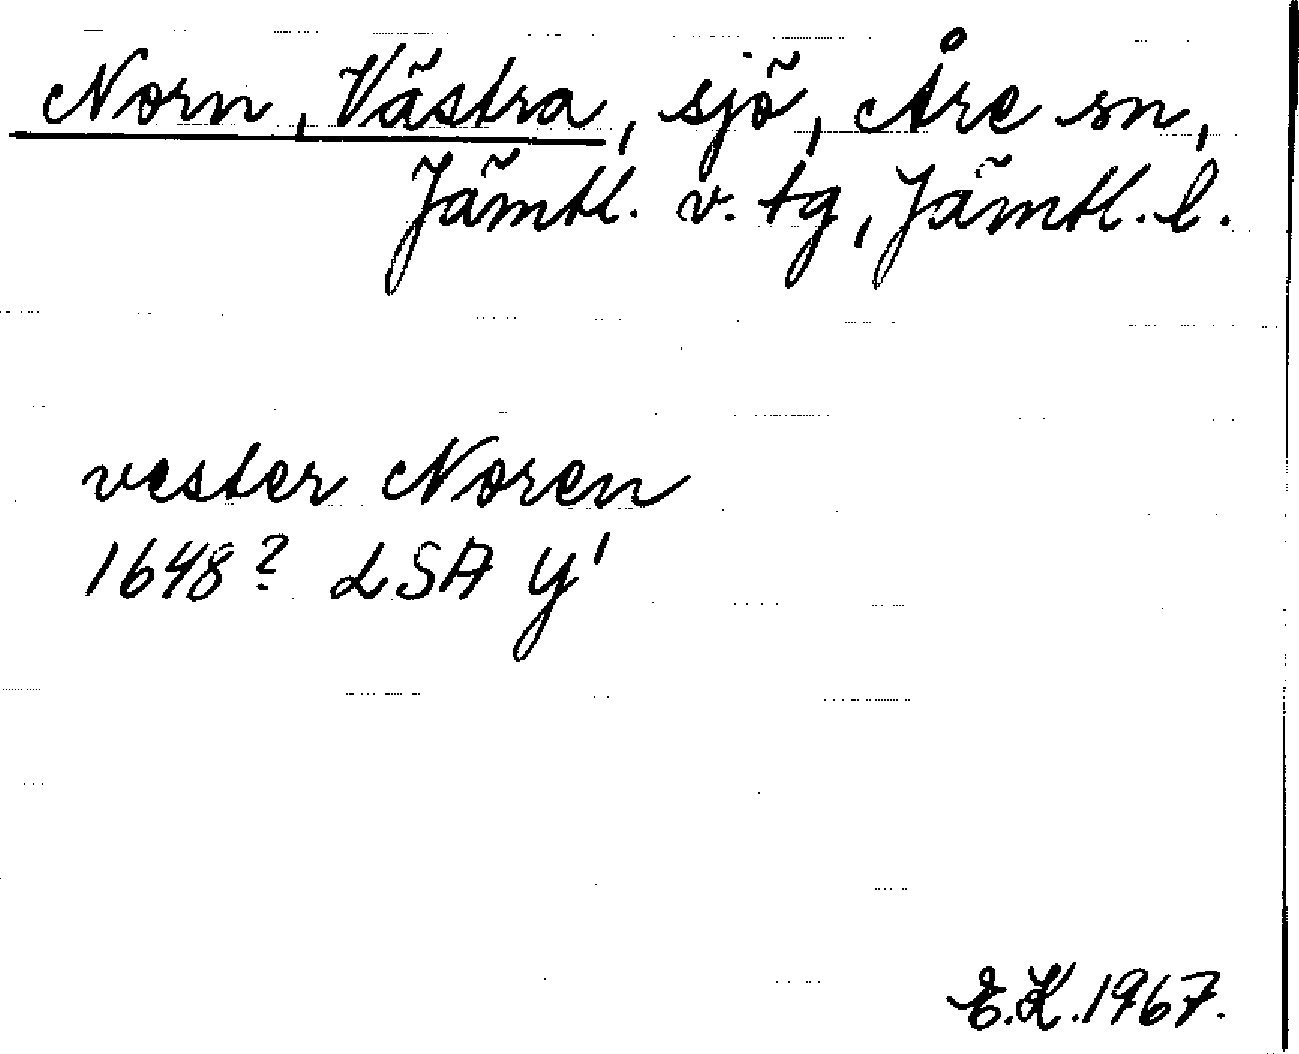 Norn, Västra, sjö, Åre sn,
Jämtl. v. tg, Jämtl. l.
vester Noren
1648? LSA Y1
E.K. 1967.